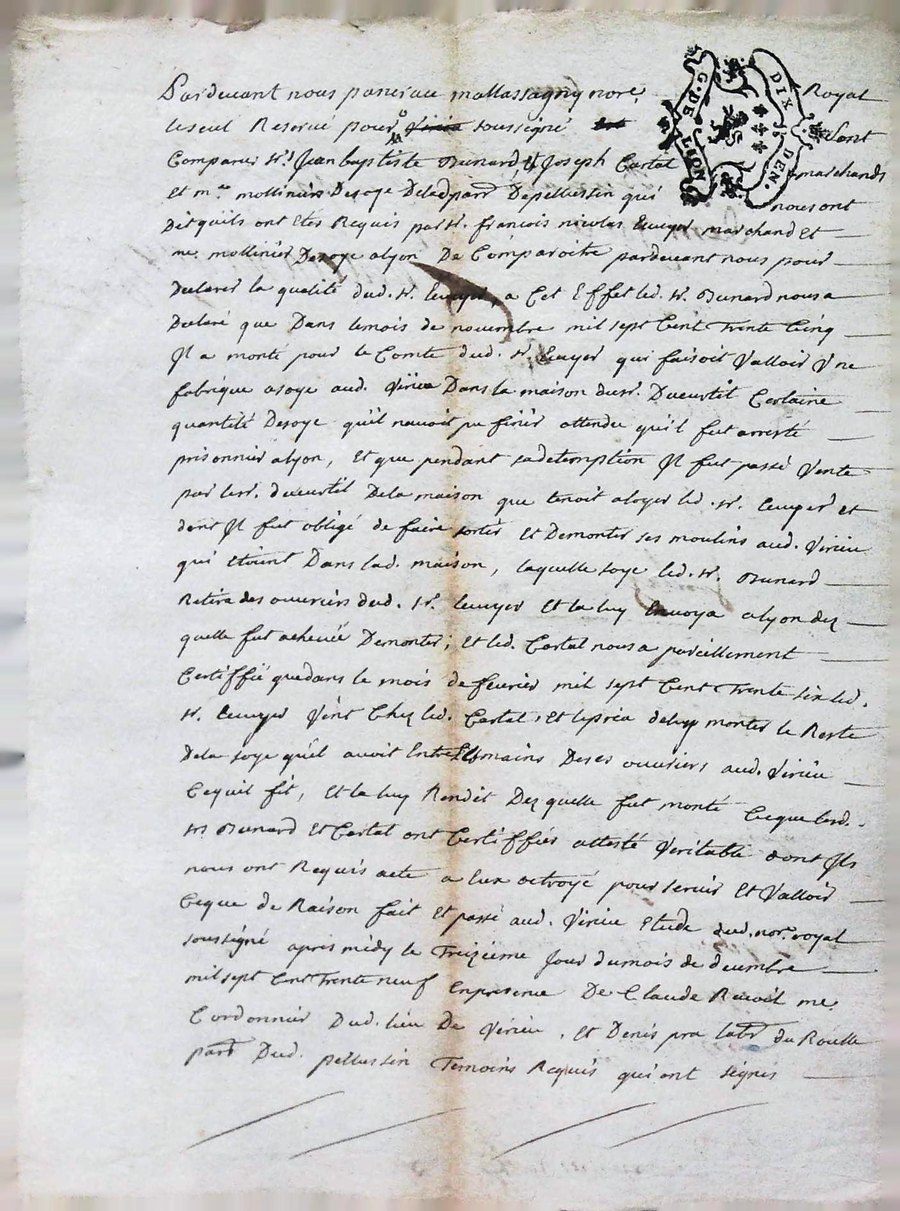 Pardevant nous pancrace mallassagny nore. Royal
le seul Reservé pour Virieu soussigné sont
Comparus srs. Jean baptiste Dunard, & Joseph Cartal marchands
Et mes. mollinieurs Desoye De lad. parr. Depellussin qui nous ont
Dit quils ont Etes Requis par sr. françois nicolas Leuyer marchand Et
me. mollinier Desoye alyon De Comparoitre pardevant nous pour
Declarer la qualité dud. sr. Leuyer, a Cet Effet led. sr. Dunard nous a
Declaré que Dans le mois de novembre mil sept Cent Trente Cinq
Jl a monté pour le Comte dud. sr. Leuyer qui faisoit Valloir Vne
fabrique a soye aud. Virieu Dans la maison du sr. Ducurtil Certaine
quantité De soye qu'il navoit pu finir attendu qu'il fut arresté
prisonnier alyon, Et que pendant sa detemption Jl fut passé Vente
par le sr. ducurtil De la maison que tenoit a loyer led. sr. Leuyer et
dont Jl fut obligé de faire sortir Et Demonter ses moulins aud. Virieu
qui Etoient Dans lad. maison, laquelle soye led. sr. Dunard
Retira des ouvriers dud. sr. Leuyer Et la luy Envoya alyon dez
quelle fut achevée Demonter; Et led. Cartal nous a pareillement
Certiffié que dans le mois de fevrier mil sept Cent Trente six led.
sr. Leuyer Vint Chez led. Cartal, Et le pria de luy monter le Reste
De la soye qu'il avoit Entre Les mains De ses ouvriers aud. Virieu
Ce quil fit, Et la luy Rendit Dez quelle fut monté Ceque lesd.
srs Dunard Et Cartal ont Certiffiés attesté Veritable dont Jls
nous ont Requis acte a Eux octroyé pour servir Et Valloir
Ceque de Raison fait Et passé aud. Virieu Etude dud. nore. royal
soussigné apres midy le Treizieme Jour du mois de decembre
mil sept Cent Trente neuf En presence De Claude Revoil me.
Cordonnier Dud. lieu De Virieu, Et Denis pra labr. du Roulle
parr. Dud. pellussin Temoins Requis qui ont signes
G. DE LION
DIX DEN.